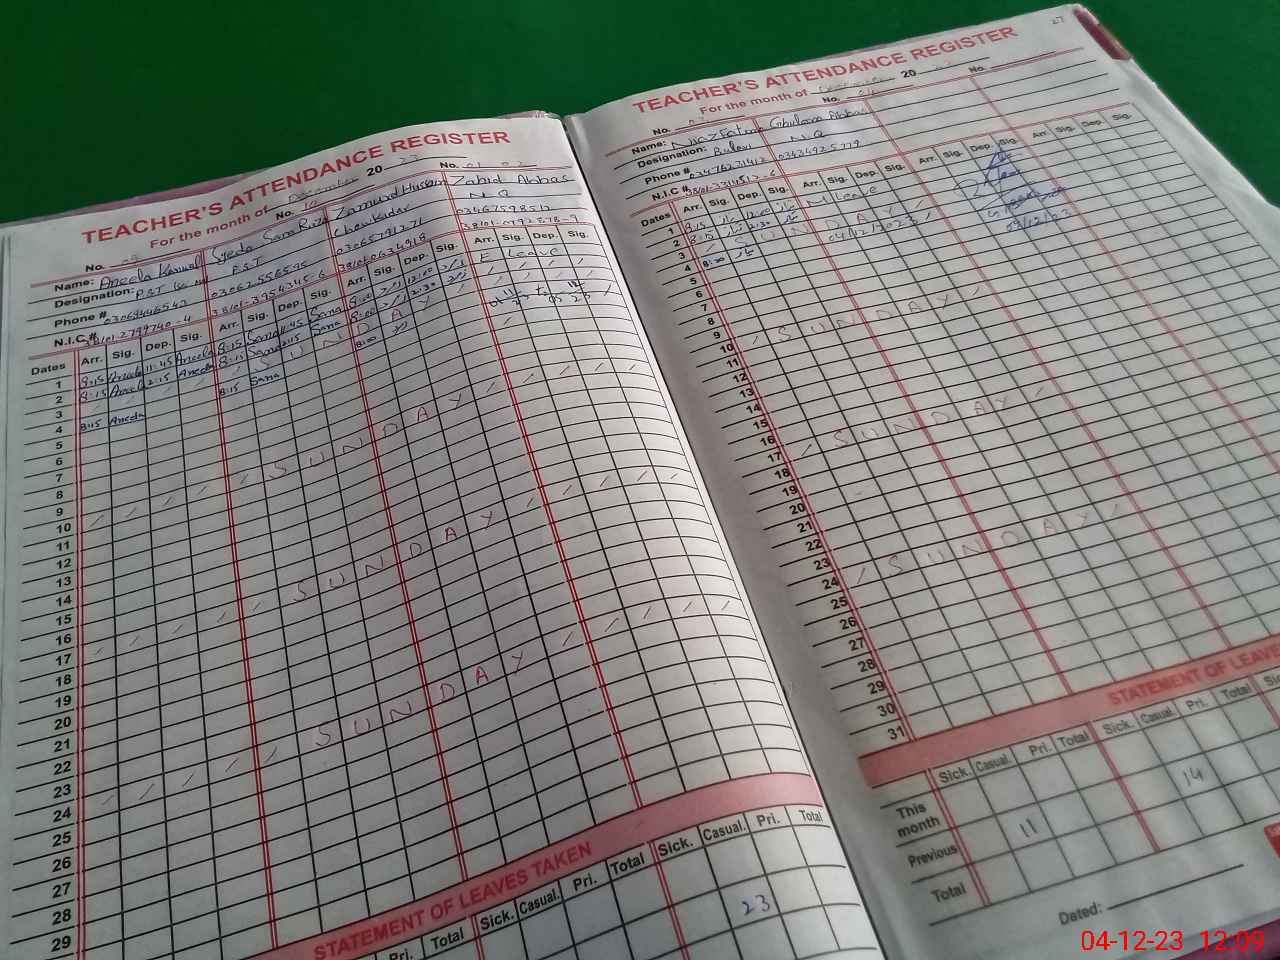 TEACHER'S ATTENDANCE REGISTER
For the month of December 20 23
No. 09 No. 10 No. 01 02
Name: Aneela Kanwal Syeda Sana Riza Zamurd Hussain Zahid Abbas
Designation: PST PST Chowkidar N.Q
Phone # 03068446543 03062556595 03065791271 03467598512
N.I.C #
Dates Arr. Sig. Dep. Sig. Arr. Sig. Dep. Sig. Arr. Sig. Dep. Sig. Arr. Sig. Dep. Sig.
1 8:15 Aneela 11:45 Aneela 8:15 Sana 11:45 Sana 8:00 12:00 E Leave
2 8:15 Aneela 2:15 Aneela 8:15 Sana 2:15 Sana 8:00 2:30
3 / / / / S U N D A Y / / / /
4 8:15 Aneela 8:15 Sana 8:00
5
6
7
8
9
10 / / / / / S U N D A Y / / / / /
11
12
13
14
15
16
17 / / / / / S U N D A Y / / / /
18
19
20
21
22
23
24 / / / / / S U N D A Y / / / / /
25
26
27
28
29
STATEMENT OF LEAVES TAKEN
Pri. Total Sick. Casual. Pri. Total Sick. Casual. Pri. Total
23
27
TEACHER'S ATTENDANCE REGISTER
For the month of December 20
No. 03 No. 04 No.
Name: Niaz Fatima Ghulam Abbas
Designation: Bulavi N.Q
Phone # 03476231412 03434925779
N.I.C # 38101-3314513-6
Dates Arr. Sig. Dep. Sig. Arr. Sig. Dep. Sig. Arr. Sig. Dep. Sig. Arr. Sig. Dep. Sig.
1 8:15 12:00 M Leave
2 8:15 2:30
3 / S U N D A Y /
4 8:00 04/12/2023
5
6
7
8
9
10 / S U N D A Y /
11
12
13
14
15
16
17 / S U N D A Y /
18
19
20
21
22
23
24 / S U N D A Y /
25
26
27
28
29
30
31
STATEMENT OF LEAVE
Sick. Casual. Pri. Total Sick. Casual. Pri. Total
This month
Previous 11 14
Total
Dated:
04-12-23 12:09